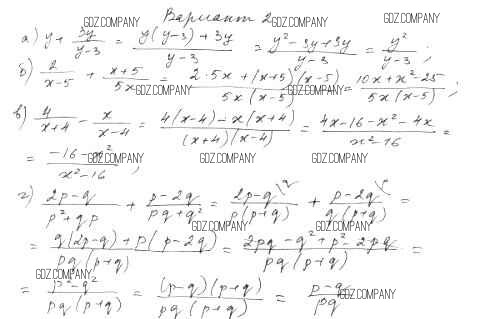 Вариант 2
а) y + 3y/(y-3) = (y(y-3)+3y)/(y-3) = (y²-3y+3y)/(y-3) = y²/(y-3);
б) 2/(x-5) + (x+5)/5x = (2·5x+(x+5)(x-5))/(5x(x-5)) = (10x+x²-25)/(5x(x-5));
в) 4/(x+4) - x/(x-4) = (4(x-4)-x(x+4))/((x+4)(x-4)) = (4x-16-x²-4x)/(x²-16) =
= (-16-x²)/(x²-16);
г) (2p-q)/(p²+qp) + (p-2q)/(pq+q²) = (2p-q\q)/(p(p+q)) + (p-2q\p)/(q(p+q)) =
= (q(2p-q)+p(p-2q))/(pq(p+q)) = (2pq-q²+p²-2pq)/(pq(p+q)) =
= (p²-q²)/(pq(p+q)) = ((p-q)(p+q))/(pq(p+q)) = (p-q)/pq
GDZ.COMPANY
GDZ.COMPANY
GDZ.COMPANY
GDZ.COMPANY
GDZ.COMPANY
GDZ.COMPANY
GDZ.COMPANY
GDZ.COMPANY
GDZ.COMPANY
GDZ.COMPANY
GDZ.COMPANY
GDZ.COMPANY
GDZ.COMPANY